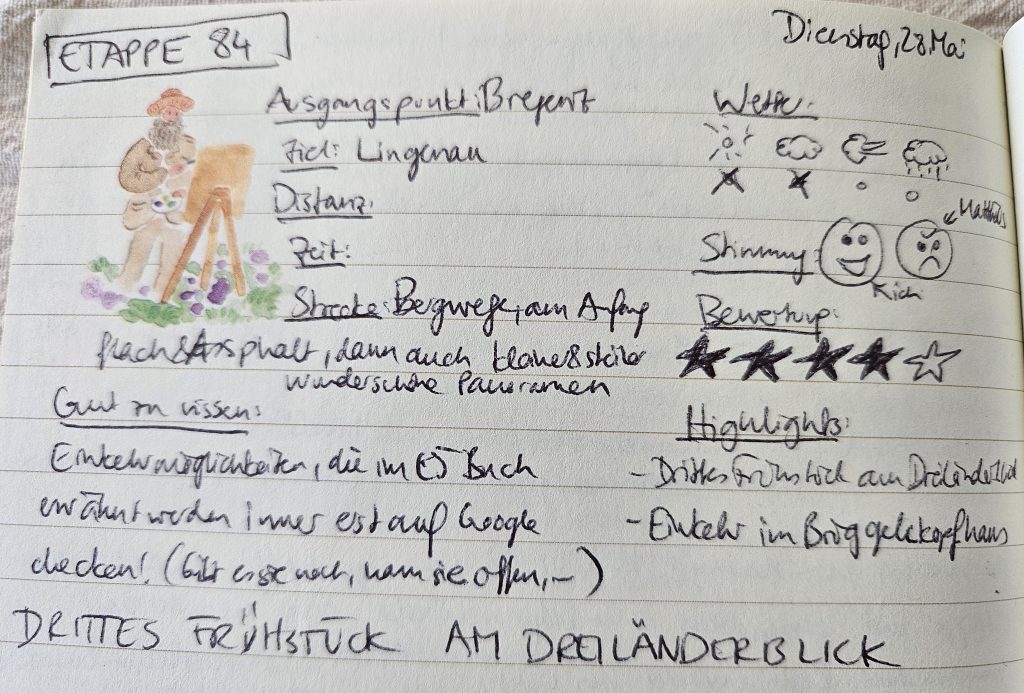 ETAPPE 84
Dienstag, 28 Mai
Ausgangspunkt: Bregenz
Ziel: Lingenau
Distanz:
Zeit:
Strecke: Bergwege, am Anfang
flach & Asphalt, dann auch kleiner & steiler
wunderschöne Panoramen
Wetter:
Stimmung:
Matthias
Michi
Bewertung:
Gut zu wissen:
Einkehrmöglichkeiten, die im Buch
erwähnt werden immer erst auf Google
checken! (Gibt es sie noch, wann sie offen, ...)
Highlights:
- Drittes Frühstück am Dreiländerblick
- Einkehr im Brüggelekopfhaus
DRITTES FRÜHSTÜCK AM DREILÄNDERBLICK